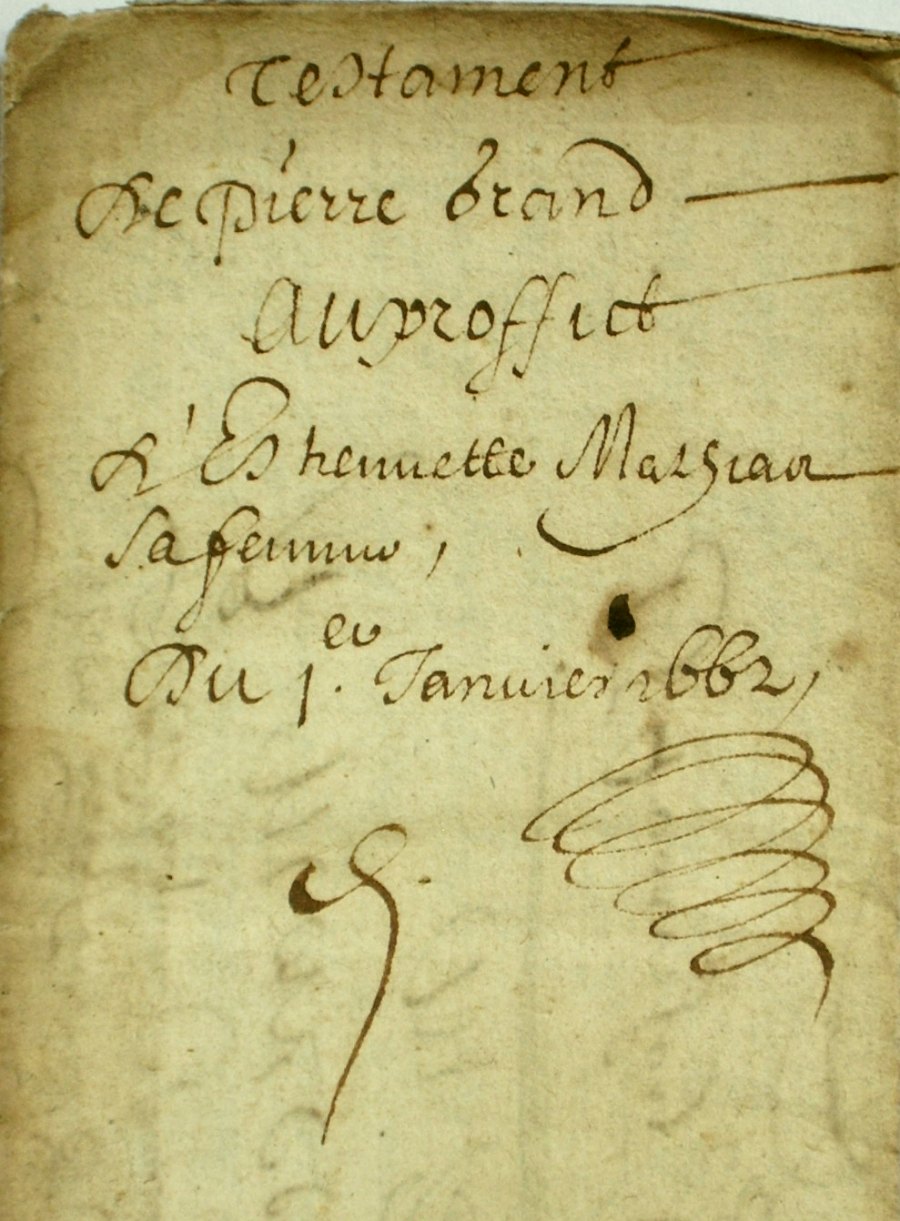 Testament
De Pierre brand
Au proffict
d'Esthennette
sa femme,
Du 1.er Janvier 1662,